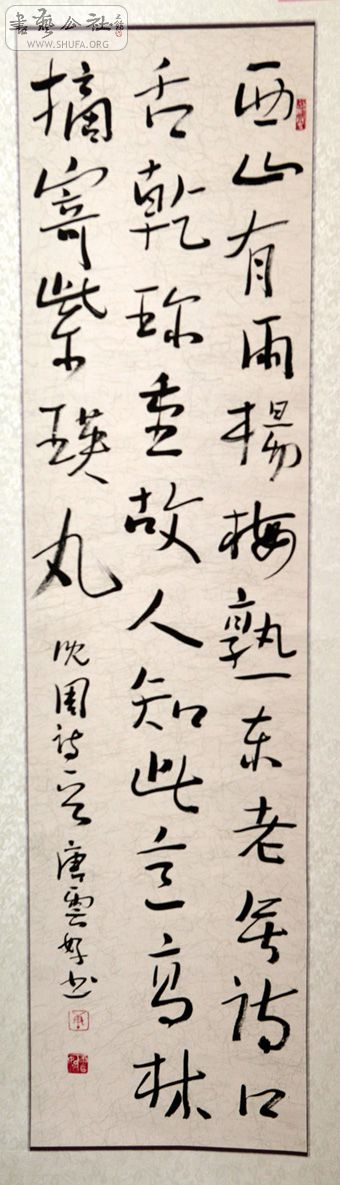 書藝公社
WWW.SHUFA.ORG
西山有雨楊梅熟東老無詩口
舌乾珍重故人知此意高林
摘寄紫瑛丸
沈周詩一首 唐雲好書